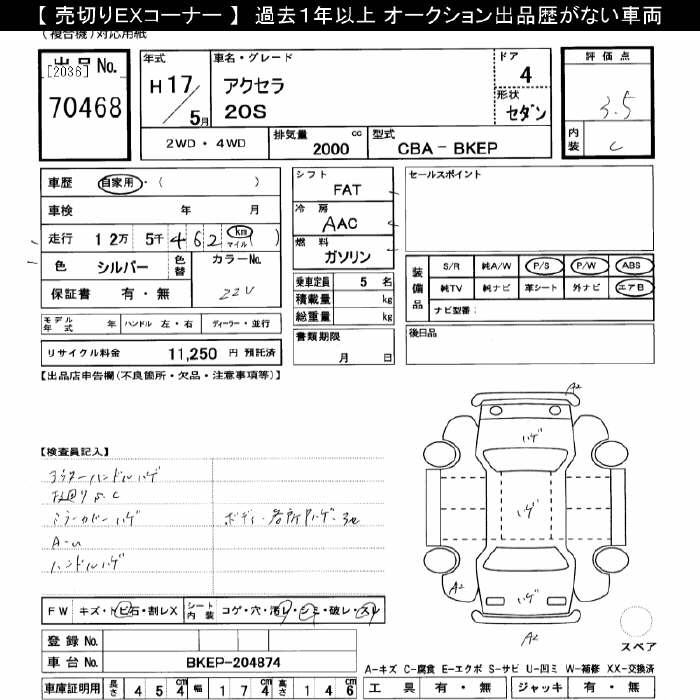 【 売切りEXコーナー 】 過去１年以上 オークション出品歴がない車両
(複合機)対応用紙
出品No.
[2036]
70468
年式
H 17/5月
車名・グレード
アクセラ
20S
ドア
4
形状
セダン
評価点
3.5
内装
C
2WD・4WD
排気量 cc
2000
型式
CBA-BKEP
車歴 自家用・( )
車検 年 月
走行 12万 5千 4 6 2 km マイル ( )
色 シルバー 色替
カラーNo.
22V
保証書 有・無
モデル年式 年 ハンドル 左・右 ディーラー・並行
リサイクル料金 11,250 円 預託済
シフト
FAT
冷房
AAC
燃料
ガソリン
乗車定員 5 名
積載量 kg
総重量 kg
書類期限
月 日
セールスポイント
装備品
S/R 純A/W P/S P/W ABS
純TV 純ナビ 革シート 外ナビ エアB
ナビ型番：
後日品
【出品店申告欄(不良箇所・欠品・注意事項等)】
【検査員記入】
ミラーカバーハゲ
A-u
ハンドルハゲ
A2
ハゲ
ハゲ
ハゲ
A2
A2
スペア
FW キズ・トビ石・割レX シート内装 コゲ・穴・汚レ・シミ・破レ・スレ
登録No.
車台No. BKEP-204874
車庫証明用 長さ 4 5 4 cm 幅 1 7 4 cm 高さ 1 4 6 cm
A-キズ C-腐食 E-エクボ S-サビ U-凹ミ W-補修 XX-交換済
工具 有・無 ジャッキ 有・無